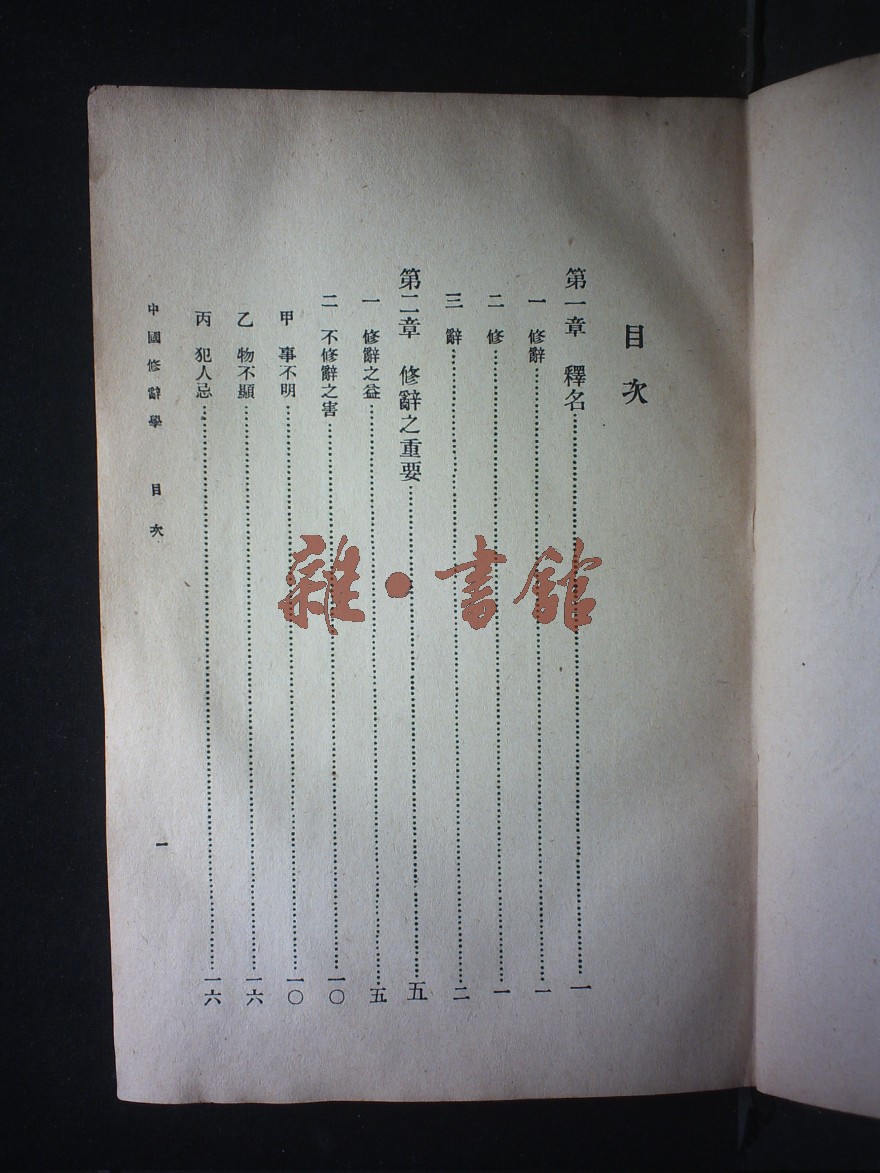 目次
第一章 釋名……一
一 修辭……一
二 修……一
三 辭……二
第二章 修辭之重要……五
一 修辭之益……五
二 不修辭之害……一〇
甲 事不明……一〇
乙 物不顯……一六
丙 犯人忌……一六
中國修辭學 目次
一
雜·書館